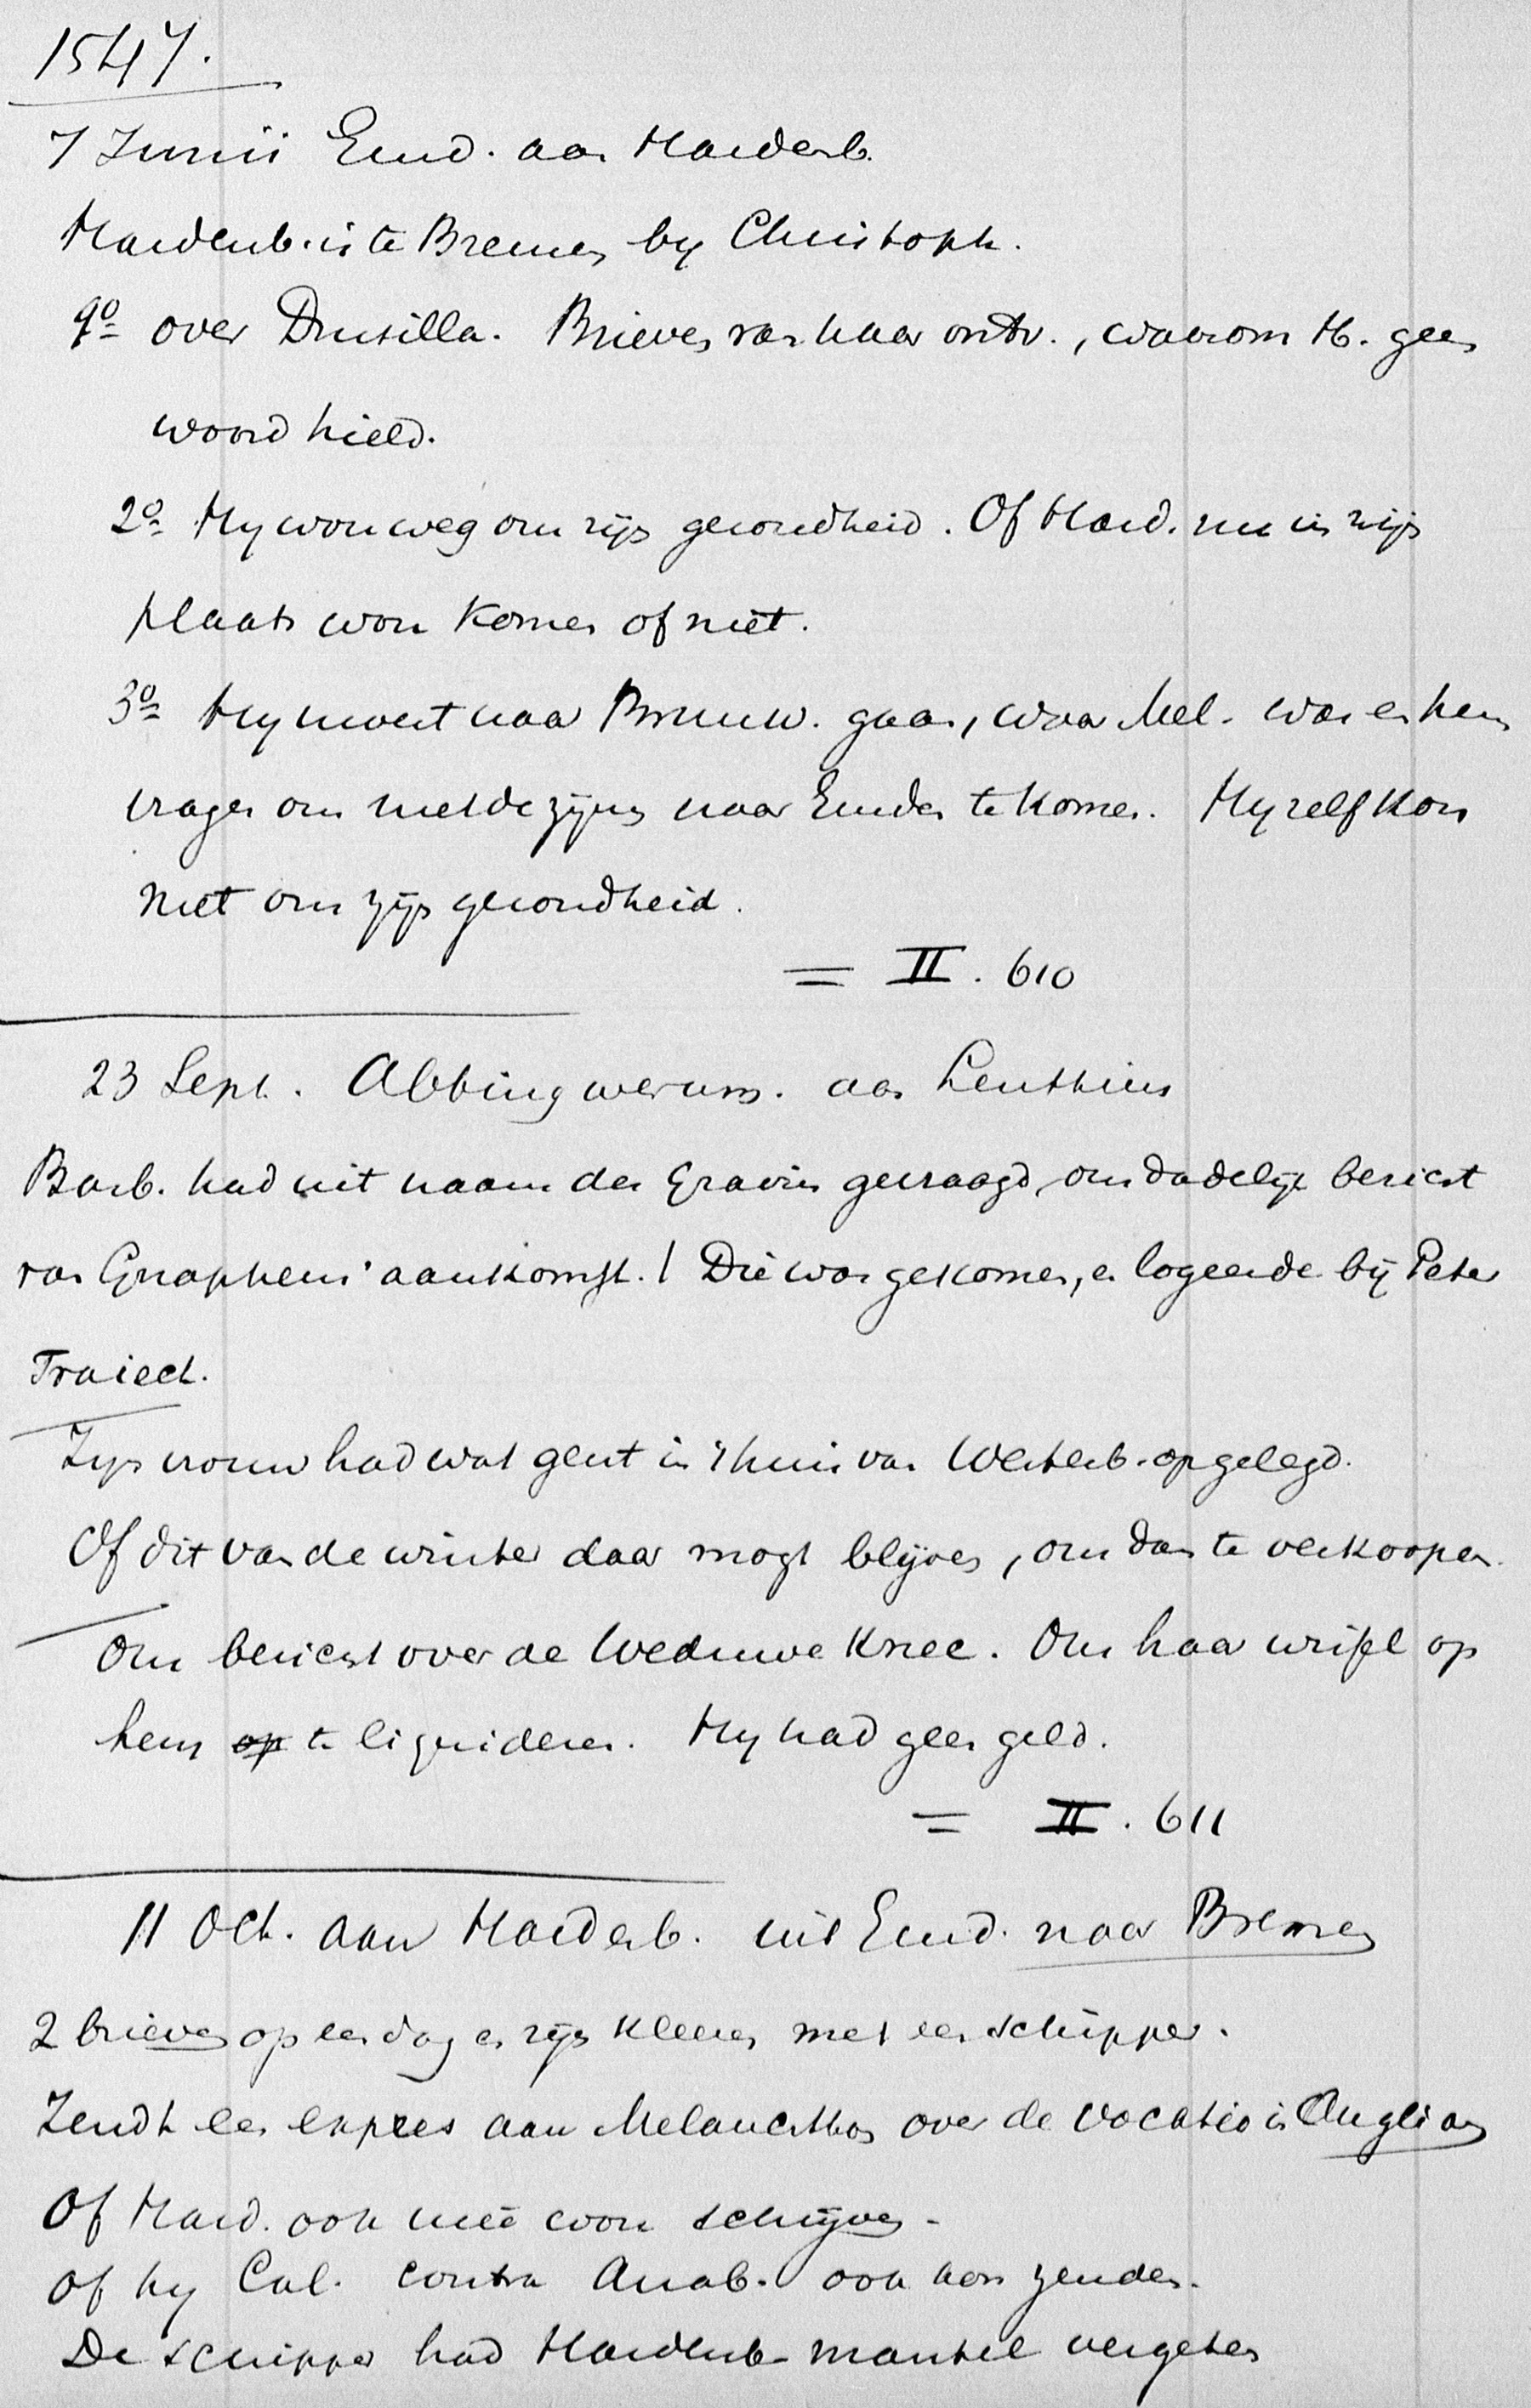 1547.
7 Junii Emd. aan Hardenb.
Hardenb. is te Bremen by Christoph.
1o over Drusilla. Brieven van haar ontv., waarom H. geen
woord hield.
2o Hy wou weg om zijn gezondheid. Of Hard. nu in zijn
plaats wou komen of niet.
3o Hy moest naar Brunsw. gaan, waar Mel. was en hem
vragen om met de zijnen naar Emden te komen. Hy zelf kon
niet om zijn gezondheid.
= II. 610
23 Sept. Abbingwerum. aan Lenthius
Barb. had uit naam der Gravin gevraagd, om dadelijk bericht
van Gnapheus' aankomst. / Die was gekomen, en logeerde bij Peter
Traiect.
Zijn vrouw had wat gerst in 't huis van Westerb. opgelegd.
Of dit van de winter daar mogt blijven, om dan te verkoopen.
Om bericht over de Weduwe Knee. Om haar wissel op
hem op te liquideren. Hy had geen geld.
= II. 611
11 Oct. aan Hardenb. uit Emd. naar Bremen
2 brieven op een dag en zijn kleeren met een schipper.
Zendt een expres aan Melanchthon over de vocatio in Angliam
Of Hard. ook mee wou schrijven.
of hy Cal. contra Anab. ook kon zenden.
De schipper had Hardenb. mantel vergeten